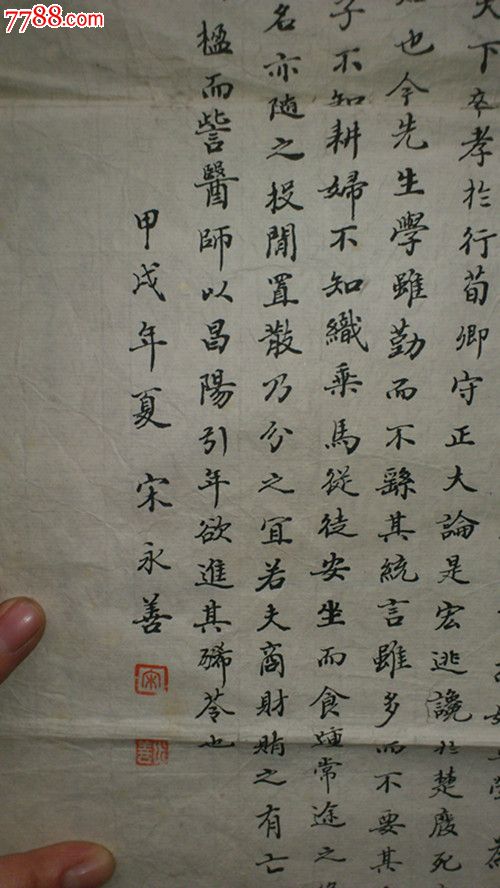 7788.com
天下卒孝於行荀卿守正大論是宏逃讒於楚廢死
也今先生學雖勤而不繇其統言雖多而不要其
子不知耕婦不知織乘馬從徒安坐而食踵常途之
名亦随之投閒置散乃分之宜若夫商財賄之有亡
楹而訾醫師以昌陽引年欲進其豨苓也
甲戌年夏 宋永善
宋
永善